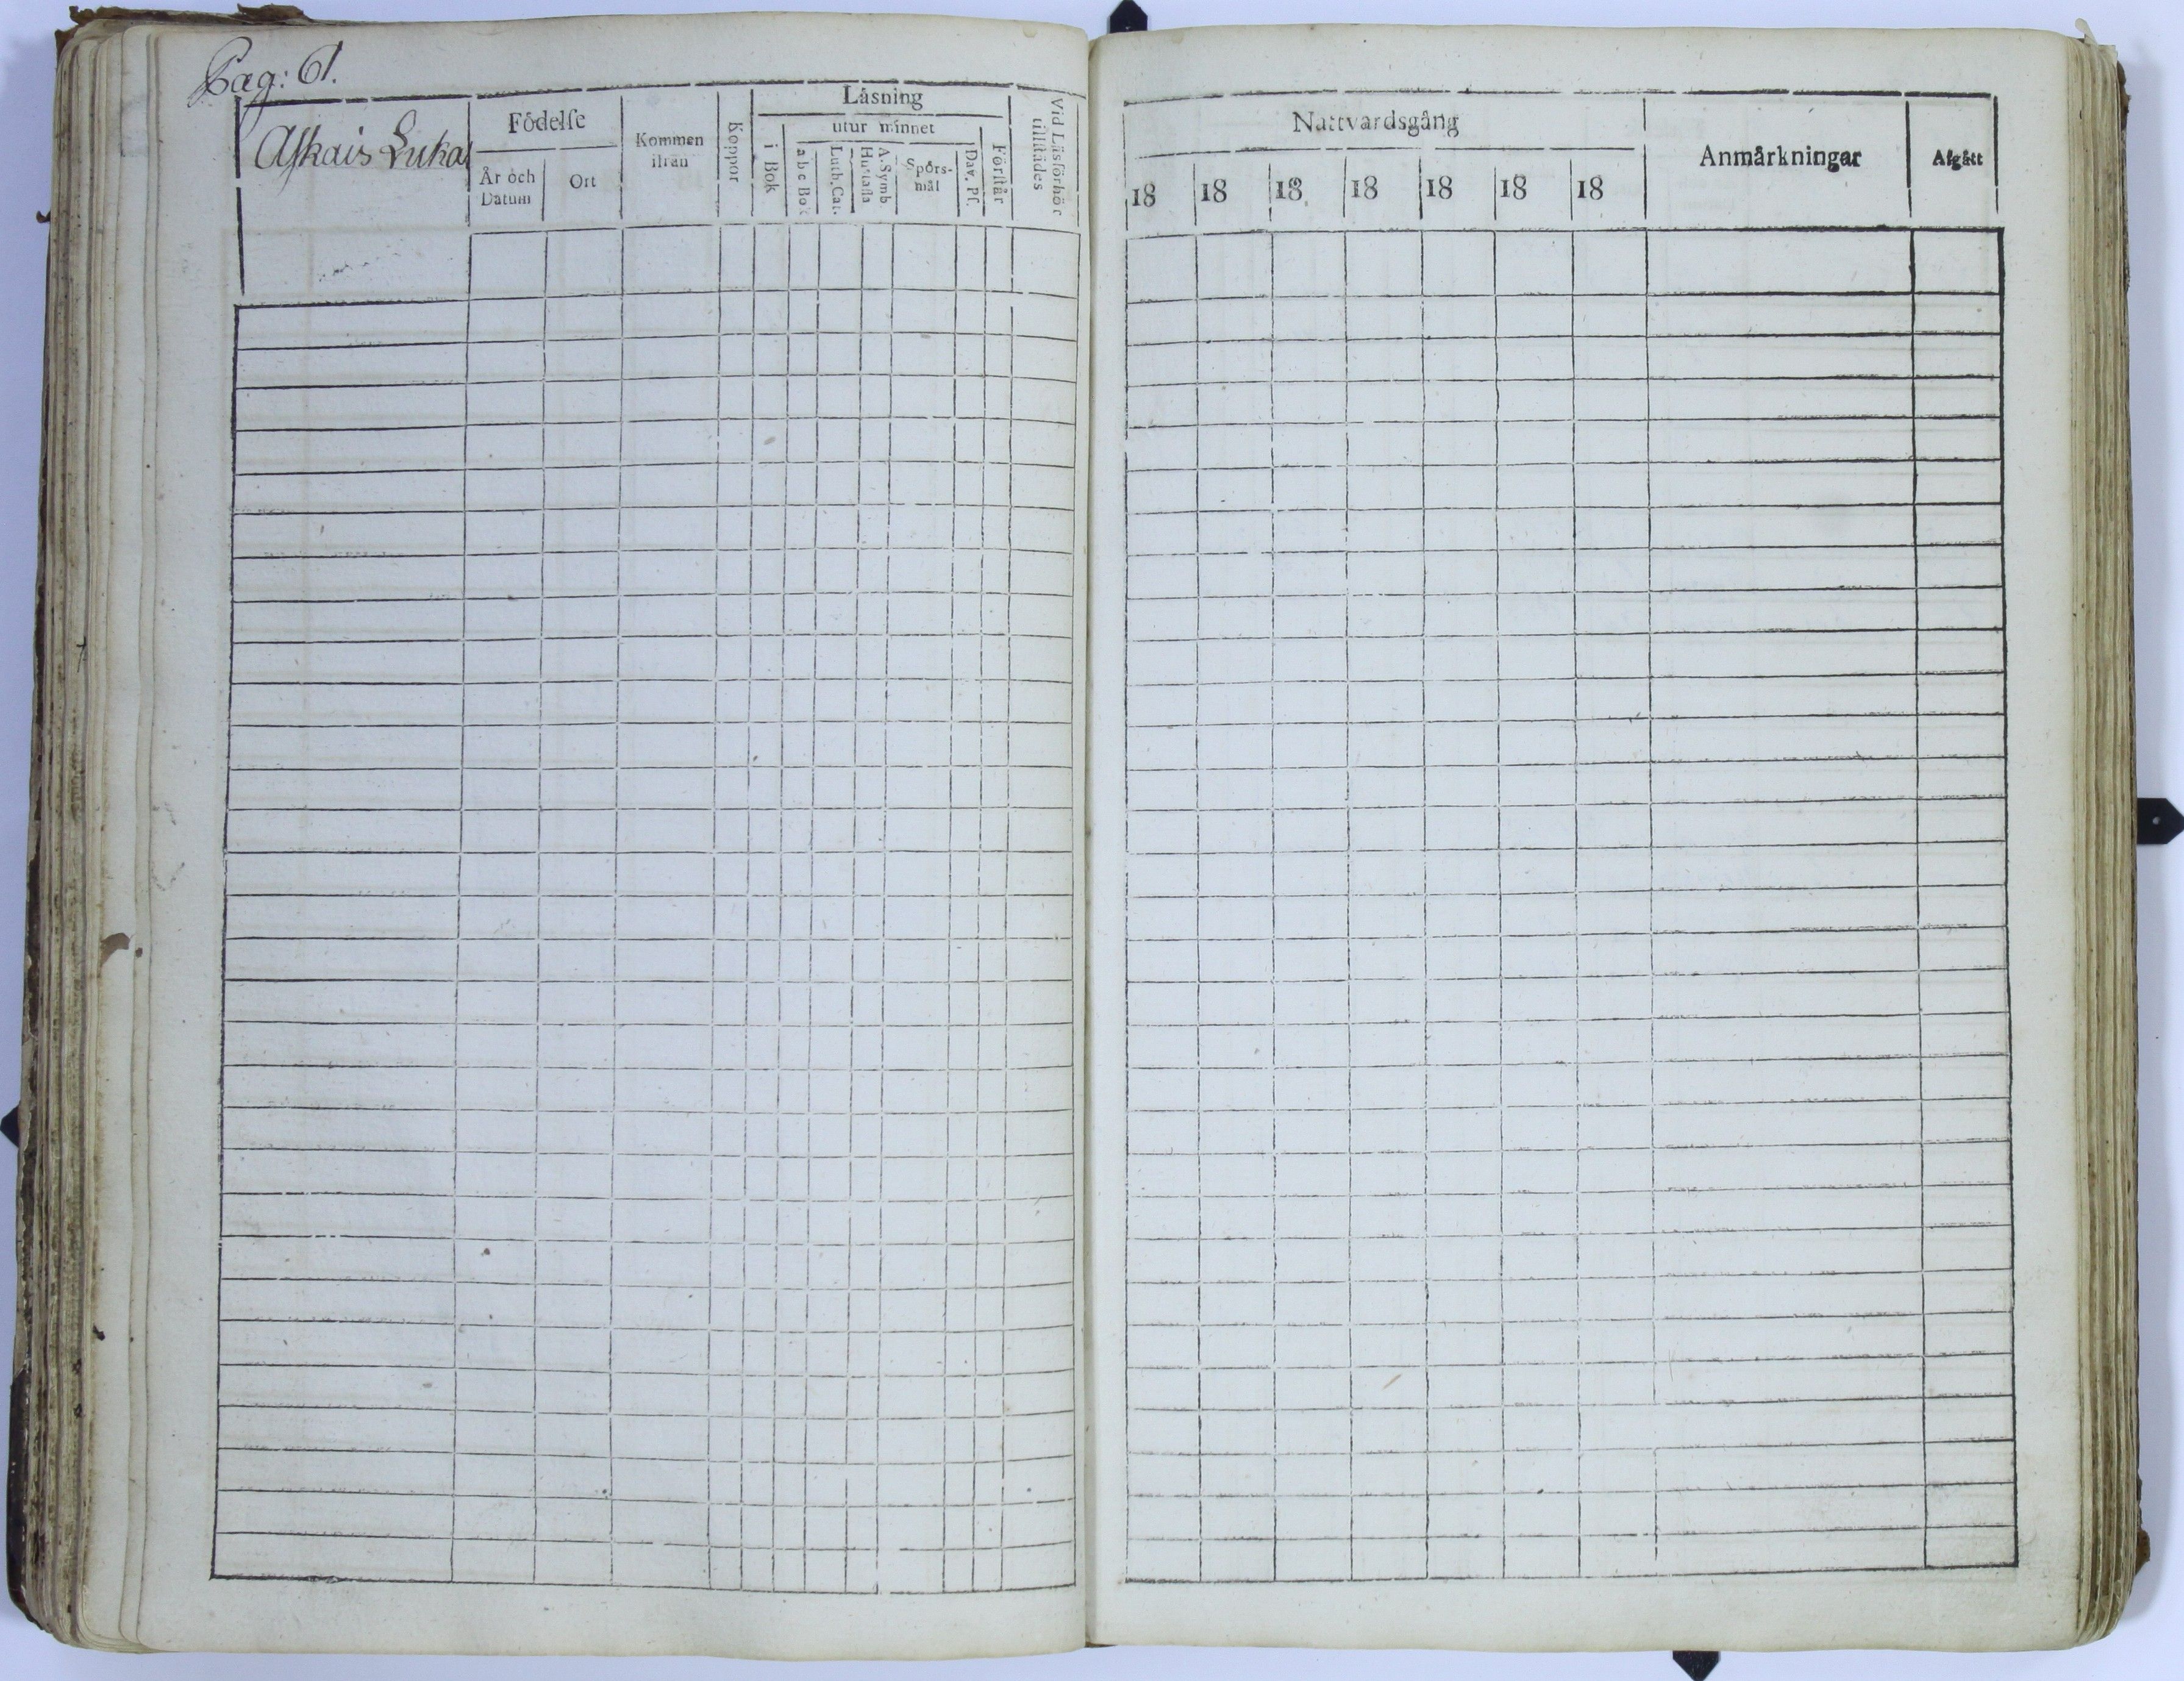 Pag: 61.
Aſkais Lukas
Födelſe
År och Datum
Ort
Kommen ifrån
Koppor
Läsning
i Bok
utur minnet
a b c Bok
Luth. Cat.
Huſtafla
A. Symb
Spörs-mål
Dav. Pſ.
Förſtår
Vid Läsförhör tillſtädes
Nattvardsgång
18 18 18 18 18 18 18
Anmärkningar
Afgått